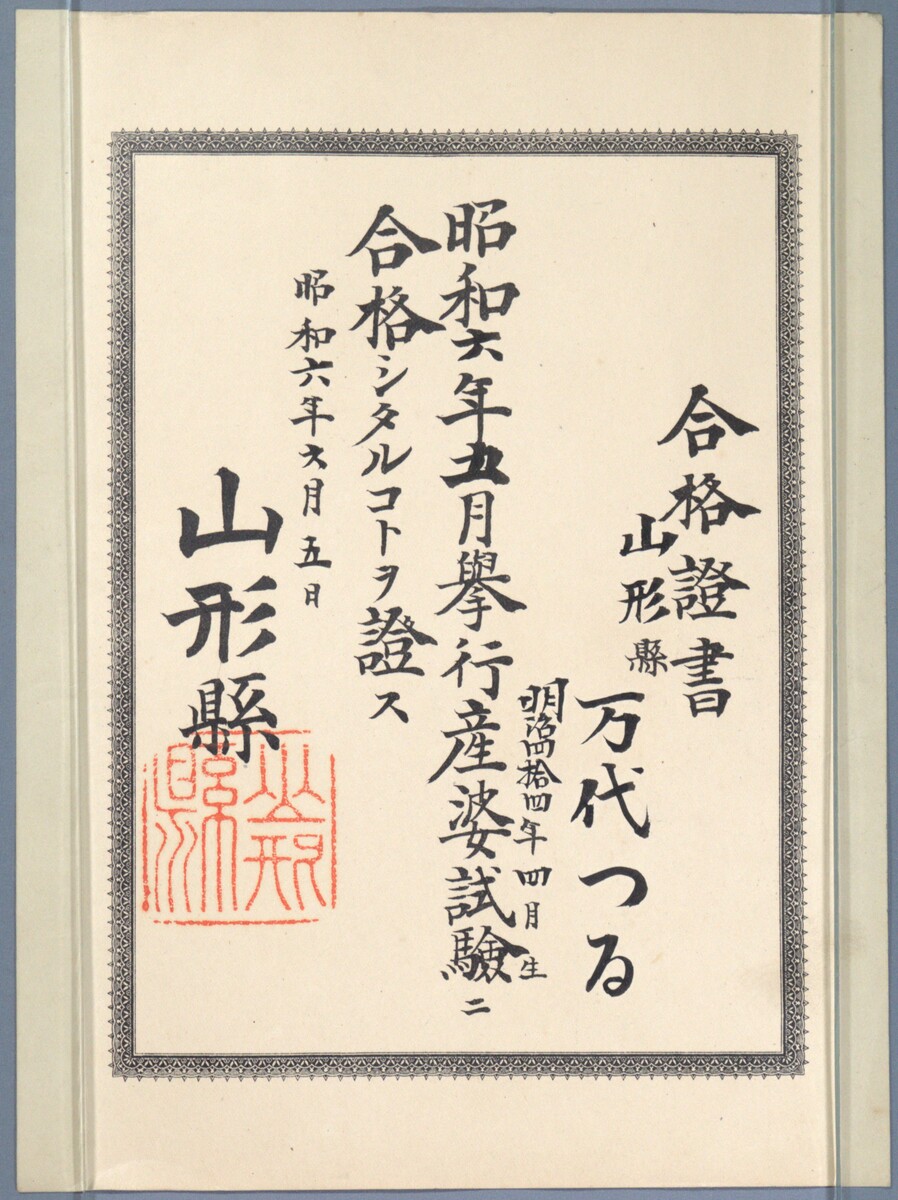 合格證書
山形縣
万代つる
明治四拾四年四月生
昭和六年五月擧行産婆試驗ニ
合格シタルコトヲ證ス
昭和六年六月五日
山形縣
山形縣